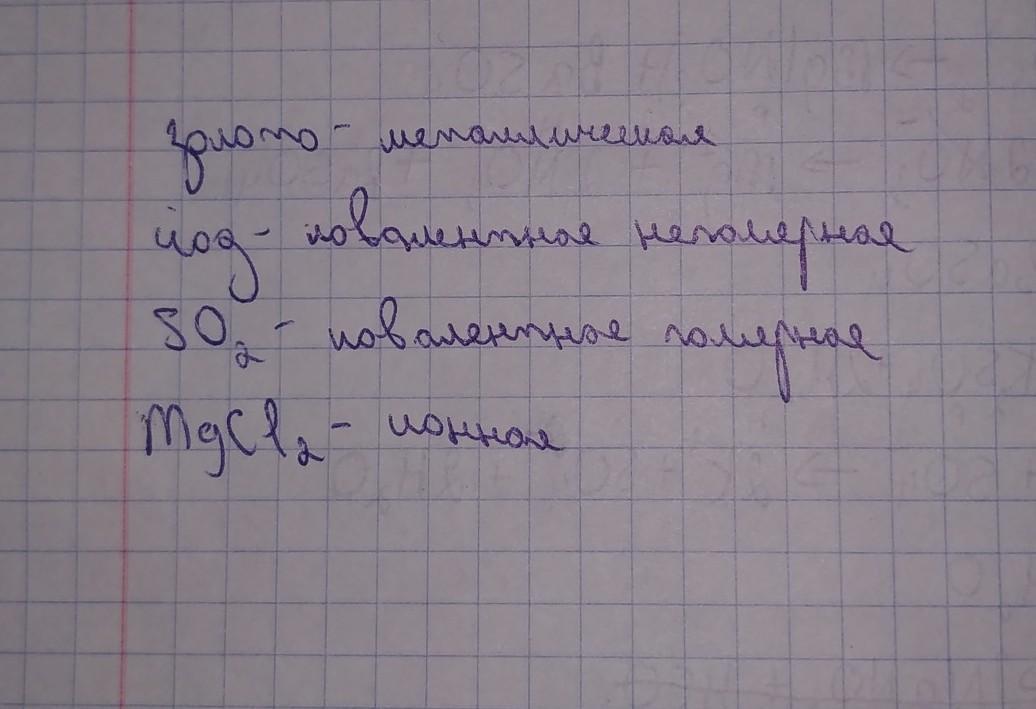 золото - металлическая
йод - ковалентная неполярная
SO₂ - ковалентная полярная
MgCl₂ - ионная